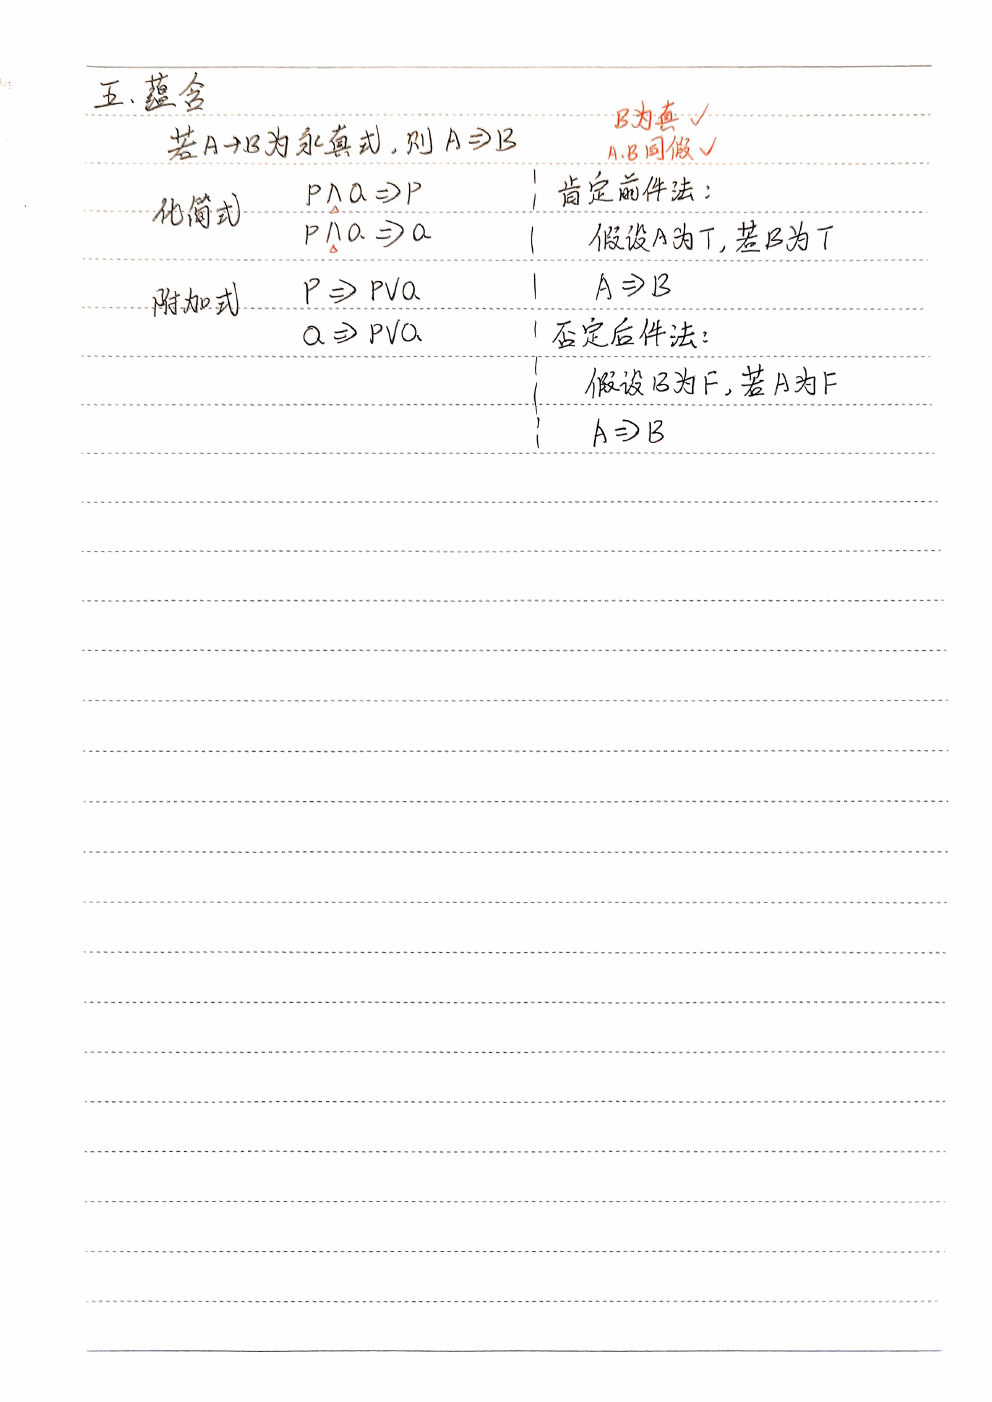 五.蕴含
若A→B为永真式,则 A⇒B
B为真 ✓
A.B同假 ✓
化简式
P∧Q⇒P
P∧Q⇒Q
附加式
P⇒P∨Q
Q⇒P∨Q
肯定前件法:
假设A为T,若B为T
A⇒B
否定后件法:
假设B为F,若A为F
A⇒B